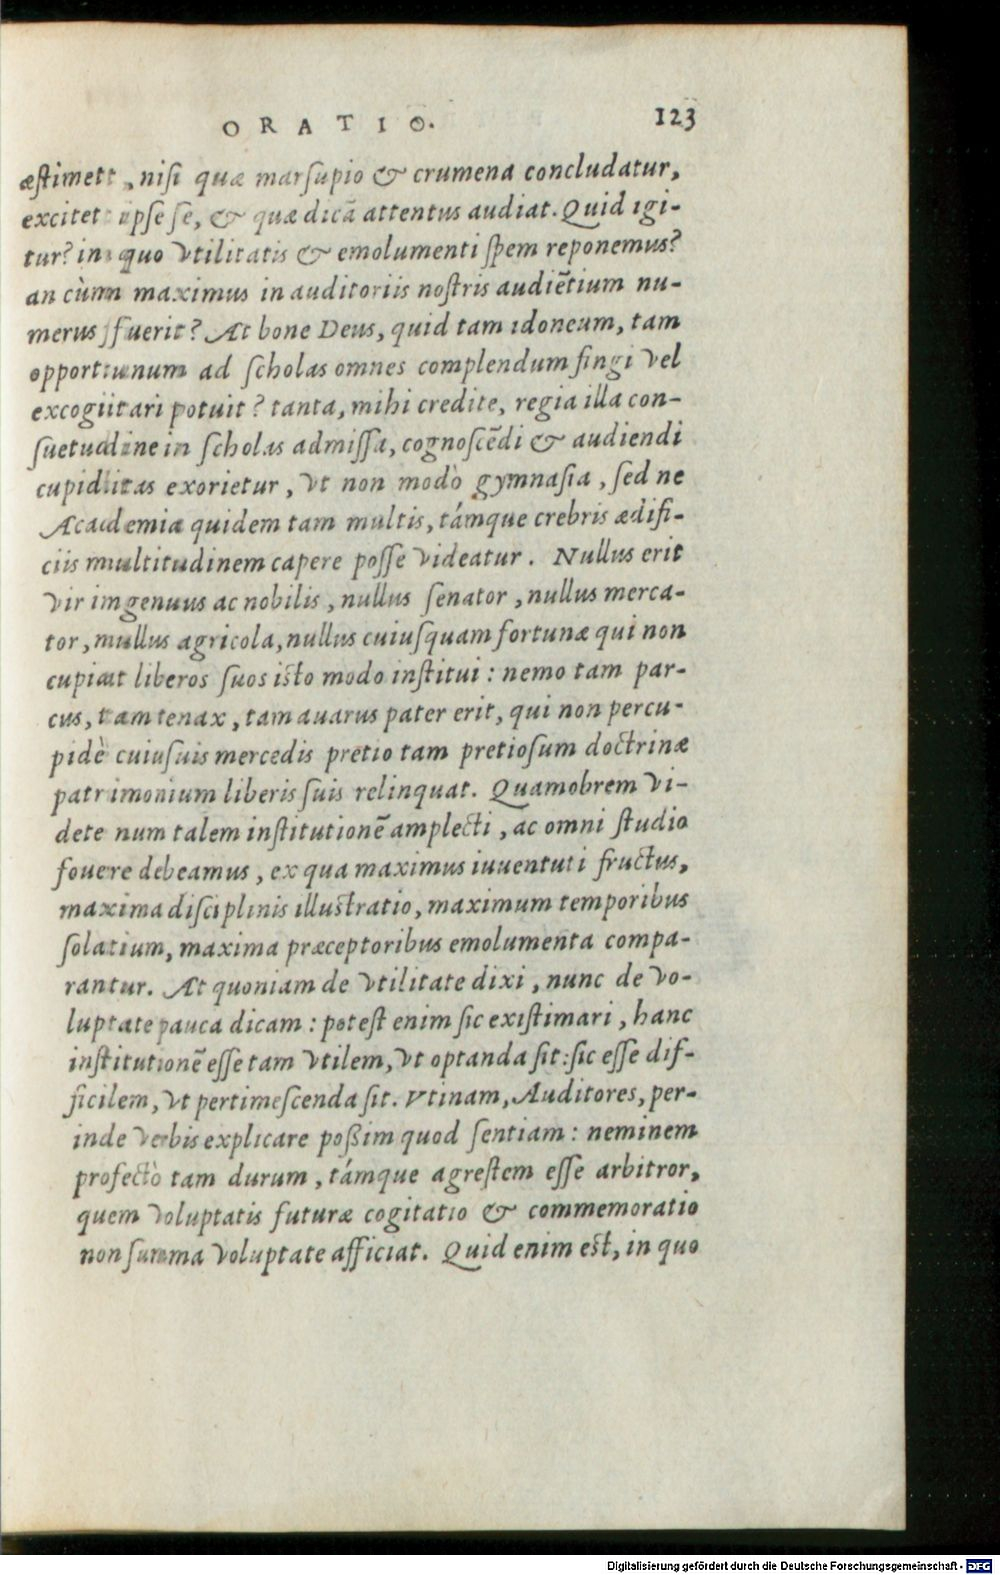 ORATIO. 123
æſtimet, niſi quæ marſupio & crumena concludatur,
excitet ipſe ſe, & quæ dicā attentus audiat. Quid igi-
tur? in quo vtilitatis & emolumenti ſpem reponemus?
an cùm maximus in auditoriis noſtris audiētium nu-
merus fuerit? At bone Deus, quid tam idoneum, tam
opportunum ad ſcholas omnes complendum fingi vel
excogitari potuit? tanta, mihi credite, regia illa con-
ſuetudine in ſcholas admiſſa, cognoſcēdi & audiendi
cupiditas exorietur, vt non modò gymnaſia, ſed ne
Academia quidem tam multis, támque crebris ædifi-
ciis multitudinem capere poſſe videatur. Nullus erit
vir ingenuus ac nobilis, nullus ſenator, nullus merca-
tor, nullus agricola, nullus cuiuſquam fortunæ qui non
cupiat liberos ſuos iſto modo inſtitui: nemo tam par-
cus, tam tenax, tam auarus pater erit, qui non percu-
pidè cuiuſuis mercedis pretio tam pretioſum doctrinæ
patrimonium liberis ſuis relinquat. Quamobrem vi-
dete num talem inſtitutionē amplecti, ac omni ſtudio
fouere debeamus, ex qua maximus iuuentuti fructus,
maxima diſciplinis illuſtratio, maximum temporibus
ſolatium, maxima præceptoribus emolumenta compa-
rantur. At quoniam de vtilitate dixi, nunc de vo-
luptate pauca dicam: poteſt enim ſic exiſtimari, hanc
inſtitutionē eſſe tam vtilem, vt optanda ſit: ſic eſſe dif-
ficilem, vt pertimeſcenda ſit. Vtinam, Auditores, per-
inde verbis explicare poßim quod ſentiam: neminem
profectò tam durum, támque agreſtem eſſe arbitror,
quem voluptatis futuræ cogitatio & commemoratio
non ſumma voluptate afficiat. Quid enim eſt, in quo
Digitalisierung gefördert durch die Deutsche Forschungsgemeinschaft - DFG